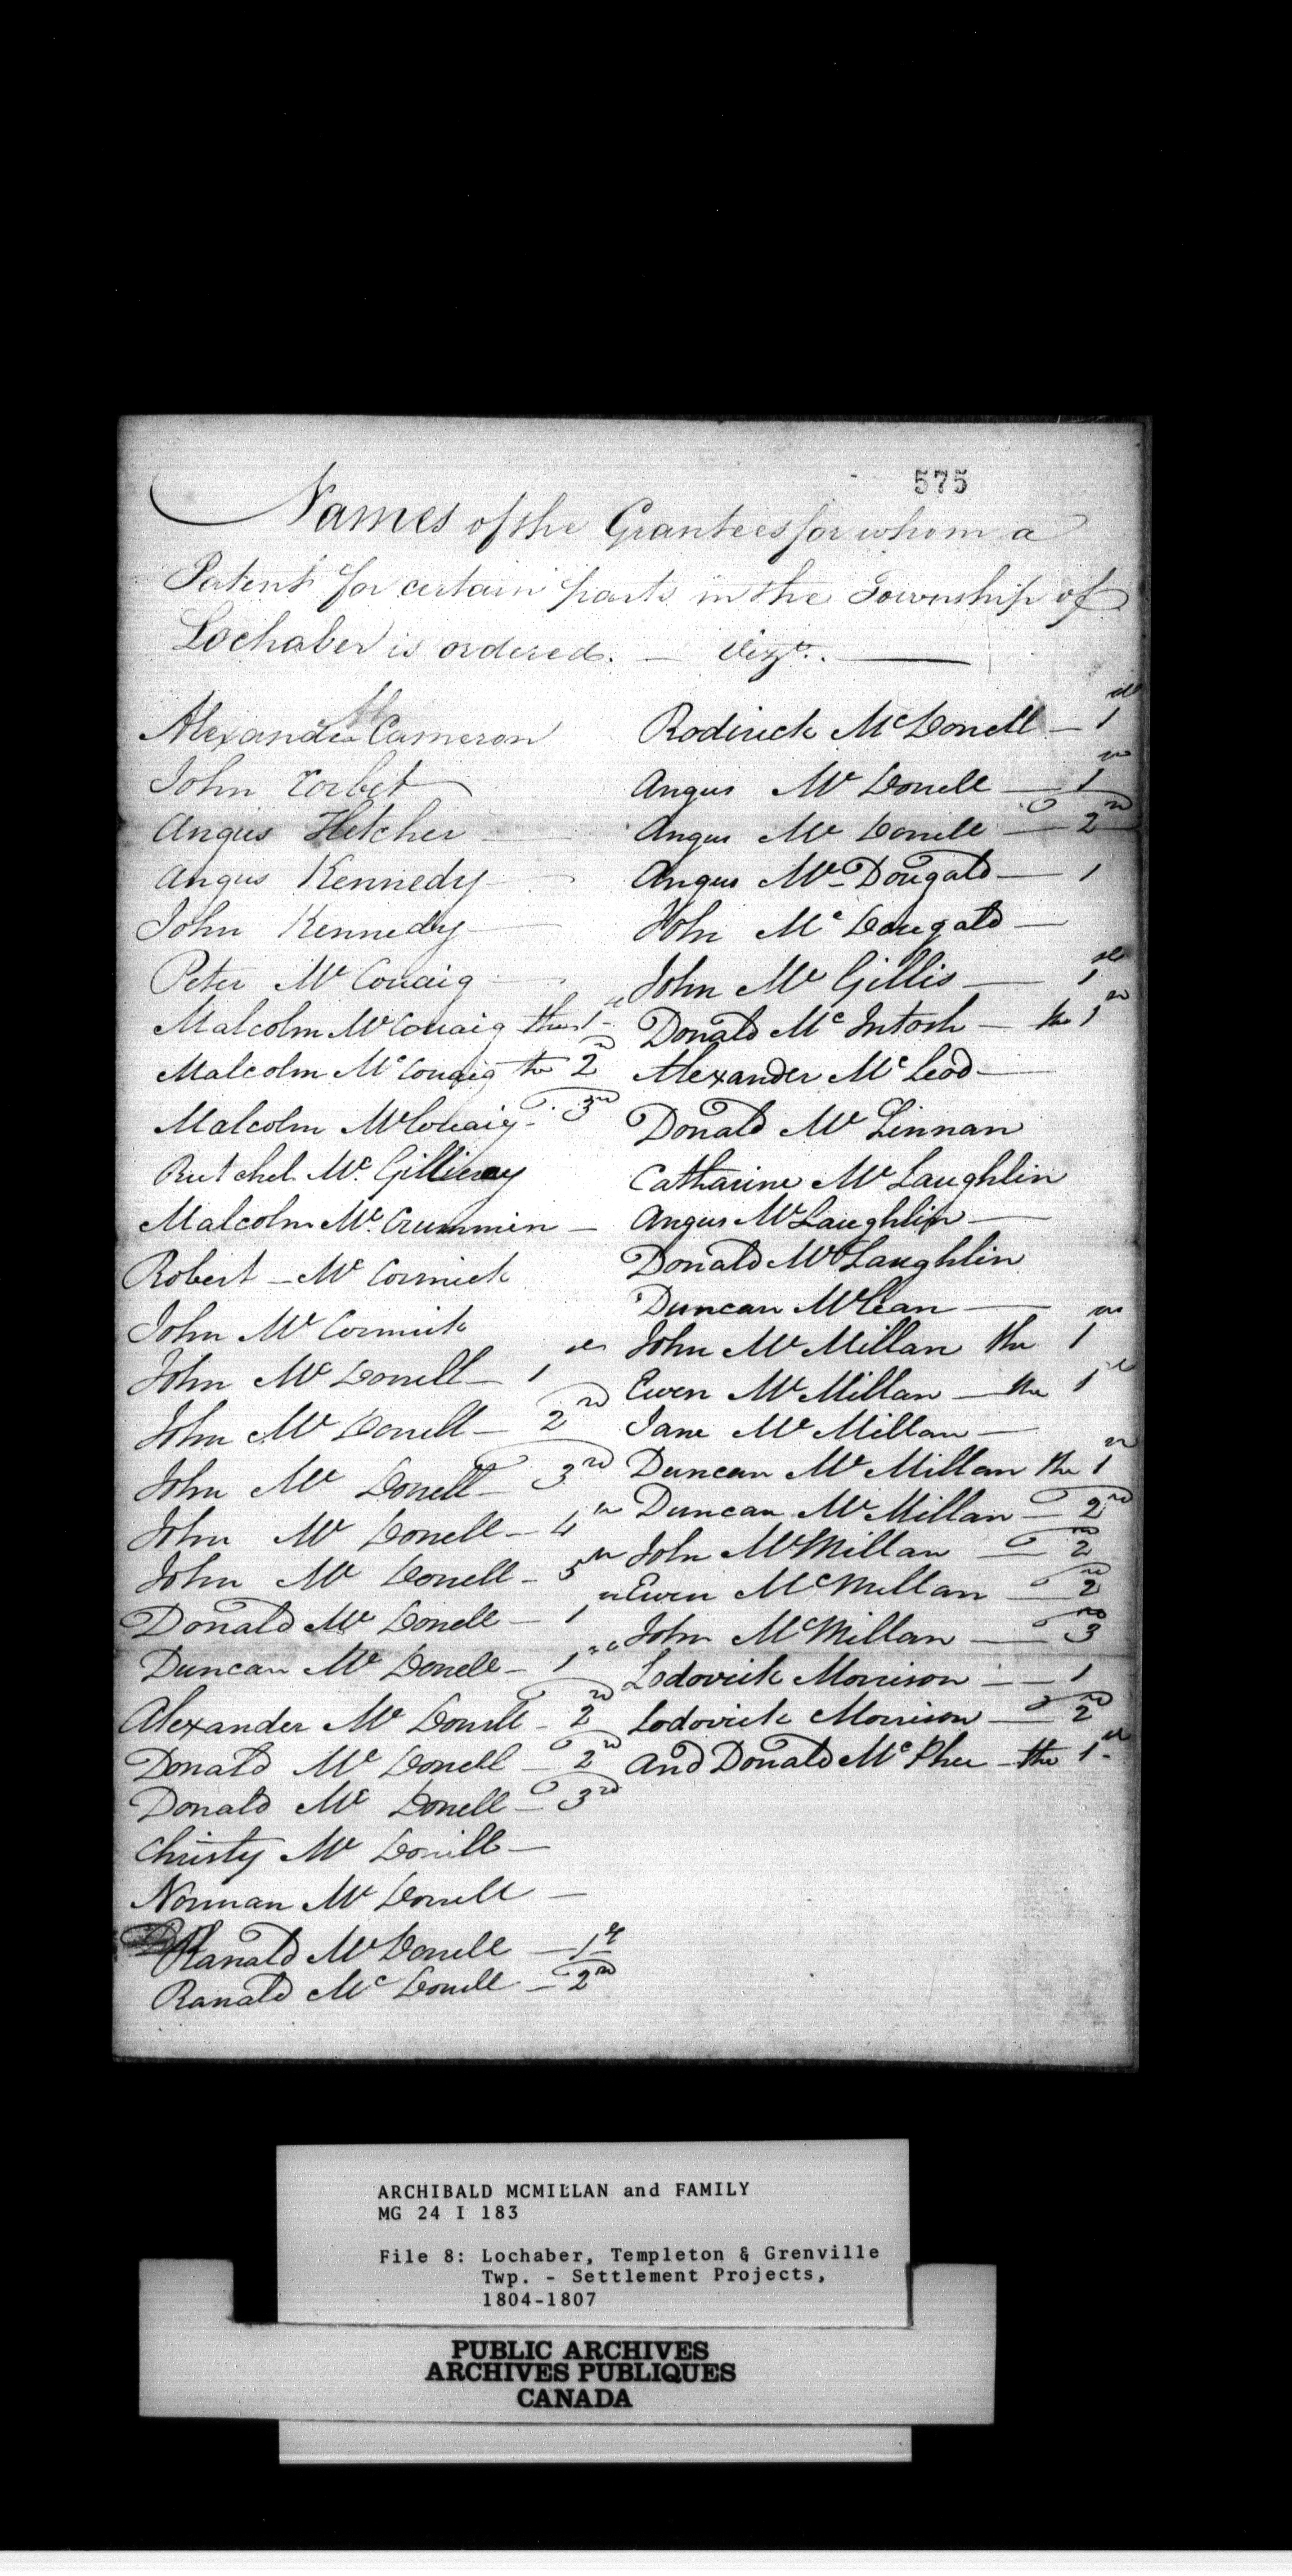 575
Names of the Grantees for whom a
Patent for certain parts in the Township of
Lochaber is ordered. — Vizt. —
Alexander Cameron
John Corbet
Angus Fletcher —
Angus Kennedy —
John Kennedy —
Peter McCouaig —
Malcolm McCouaig the 1st
Malcolm McCouaig the 2nd
Malcolm McCouaig - 3rd
McGillivray
Malcolm McCrummin —
Robert — McCormick
John McCormick
John McDonell — 1st
John McDonell — 2nd
John McDonell — 3rd
John McDonell — 4th
John McDonell — 5th
Donald McDonell — 1st
Duncan McDonell — 1st
Alexander McDonell — 2nd
Donald McDonell — 2nd
Donald McDonell — 3rd
Christy McDonell —
Norman McDonell —
Ranald McDonell — 1st
Ranald McDonell — 2nd
Roderick McDonell — 1st
Angus McDonell — 1st
Angus McDonell — 2nd
Angus McDougald — 1
John McDougald —
John McGillis — 1st
Donald McIntosh — the 1st
Alexander McLeod —
Donald McLinnan
Catharine McLaughlin
Angus McLaughlin —
Donald McLaughlin
Duncan McLean —
John McMillan the 1st
Ewen McMillan — the 1st
Jane McMillan —
Duncan McMillan the 1st
Duncan McMillan — 2nd
John McMillan — 2nd
Ewen McMillan — 2nd
John McMillan — 3rd
Lodovick Morrison — 1
Lodovick Morrison — 2nd
And Donald McPhee — the 1st
ARCHIBALD MCMILLAN and FAMILY
MG 24 I 183
File 8: Lochaber, Templeton & Grenville
Twp. - Settlement Projects,
1804-1807
PUBLIC ARCHIVES
ARCHIVES PUBLIQUES
CANADA